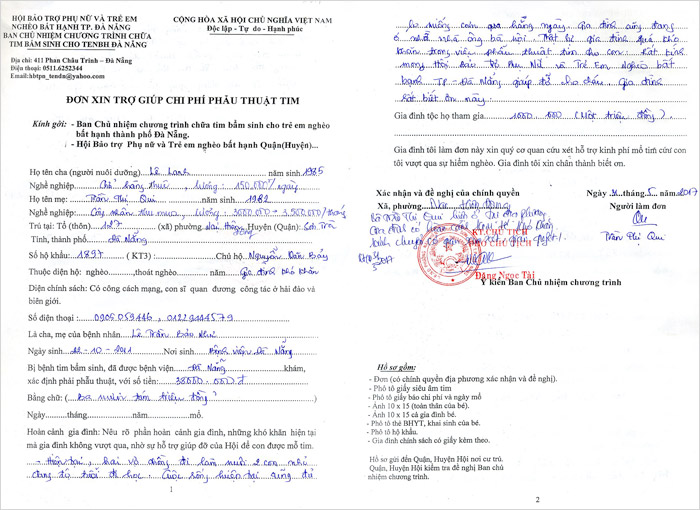 HỘI BẢO TRỢ PHỤ NỮ VÀ TRẺ EM
NGHÈO BẤT HẠNH TP. ĐÀ NẴNG
BAN CHỦ NHIỆM CHƯƠNG TRÌNH CHỮA
TIM BẨM SINH CHO TENBH ĐÀ NẴNG
CỘNG HÒA XÃ HỘI CHỦ NGHĨA VIỆT NAM
Độc lập - Tự do - Hạnh phúc
Địa chỉ: 411 Phan Châu Trinh – Đà Nẵng
Điện thoại: 0511.6252344
Email:hbtpn_tendn@yahoo.com
ĐƠN XIN TRỢ GIÚP CHI PHÍ PHẪU THUẬT TIM
Kính gởi: - Ban Chủ nhiệm chương trình chữa tim bẩm sinh cho trẻ em nghèo
bất hạnh thành phố Đà Nẵng.
- Hội Bảo trợ Phụ nữ và Trẻ em nghèo bất hạnh Quận(Huyện)...
Họ tên cha (người nuôi dưỡng) Lê Lanh sinh năm 1985
Nghề nghiệp Chở hàng thuê, lương 150.000/ ngày
Họ tên mẹ: Trần Thị Qui sinh năm 1982
Nghề nghiệp Công nhân thu mua, lương 3000000 - 3.500.000/tháng
Trú tại: Tổ (thôn) 127 (xã) phường Nại Hiên Đông Huyện (Quận): Sơn Trà
Tỉnh, thành phố Đà Nẵng
Số hộ khẩu: 1897 ( KT3) : Chủ hộ Nguyễn Văn Bảy
Thuộc diện hộ: nghèo ,thoát nghèo năm Gia đình khó khăn
Diện chính sách: Có công cách mạng, con sĩ quan đương công tác ở hải đảo và
biên giới.
Số điện thoại : 0905059446, 01229444579
Là cha, mẹ của bệnh nhân Lê Trần Bảo Như
Ngày sinh 22-10-2011 Nơi sinh Bệnh viện Đà Nẵng
Bị bệnh tim bẩm sinh, đã được bệnh viện Đà Nẵng khám,
xác định phải phẫu thuật, với số tiền: 38000.000 đ
Bằng chữ: ( ba mươi tám triệu đồng )
Ngày tháng năm mổ.
Hoàn cảnh gia đình: Nêu rõ phần hoàn cảnh gia đình, những khó khăn hiện tại
mà gia đình không vượt qua, nhờ sự hỗ trợ giúp đỡ của Hội để con được mổ tim.
- Hiện tại, hai vợ chồng đi làm nuôi 2 con nhỏ
đang độ tuổi đi học. Cuộc sống hiện tại cũng đủ
1
lo miếng cơm qua hằng ngày. Gia đình cũng đang
ở nhờ nhà ông bà nội. Thật sự gia đình quá khó
khăn trong việc phẫu thuật tim cho con. Rất kính
mong Hội Bảo Trợ Phụ Nữ và Trẻ Em Nghèo Bất
hạnh TP - Đà Nẵng giúp đỡ cho cháu. Gia đình
rất biết ơn này.
Gia đình tộc họ tham gia 1000.000 (Một triệu đồng).
Gia đình tôi làm đơn này xin quý cơ quan cứu xét hỗ trợ kinh phí mổ tim cứu con
tôi vượt qua sự hiểm nghèo. Gia đình tôi xin chân thành biết ơn.
Xác nhận và đề nghị của chính quyền
Xã, phường Nại Hiên Đông
Bà Trần Thị Qui hiện ở tại địa phương
KT. CHỦ TỊCH
PHÓ CHỦ TỊCH
Đặng Ngọc Tài
Ngày 31 tháng 5 năm 2017
Người làm đơn
Qui
Trần Thị Qui
Ý kiến Ban Chủ nhiệm chương trình
Hồ sơ gồm:
- Đơn (có chính quyền địa phương xác nhận và đề nghị).
- Phô tô giấy siêu âm tim
- Phô tô giấy báo chi phí và ngày mổ
- Ảnh 10 x 15 (toàn thân của bé).
- Ảnh 10 x 15 cả gia đình bé.
- Phô tô thẻ BHYT, khai sinh của bé.
- Phô tô hộ khẩu.
- Gia đình chính sách có giấy kèm theo.
Hồ sơ gửi đến Quận, Huyện Hội nơi cư trú.
Quận, Huyện Hội kiểm tra đề nghị Ban chủ
nhiệm chương trình.
2